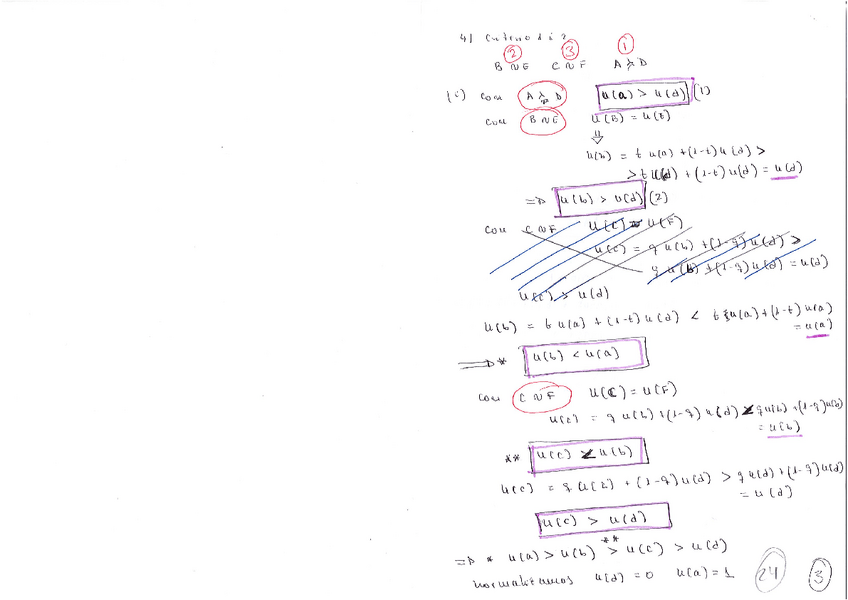 4)
② ③ ①
B ~ E C ~ F A ≻ D
(c) con A ≻ D u(a) > u(d) (1)
con B ~ E u(B) = u(E)
⇓
u(b) = t u(a) + (1-t) u(d) >
> t u(d) + (1-t) u(d) = u(d)
=> u(b) > u(d) (2)
con C ~ F u(c) = u(F)
u(c) = q u(b) + (1-q) u(d) >
q u(b) + (1-q) u(d) = u(d)
u(c) > u(d)
u(b) = t u(a) + (1-t) u(d) < t u(a) + (1-t) u(a)
= u(a)
=> * u(b) < u(a)
con C ~ F u(C) = u(F)
u(c) = q u(b) + (1-q) u(d) < q u(b) + (1-q) u(b)
= u(b)
** u(c) < u(b)
u(c) = q u(b) + (1-q) u(d) > q u(d) + (1-q) u(d)
= u(d)
u(c) > u(d)
**
=> * u(a) > u(b) > u(c) > u(d)
normalizamos u(d) = 0 u(a) = 1 24 3